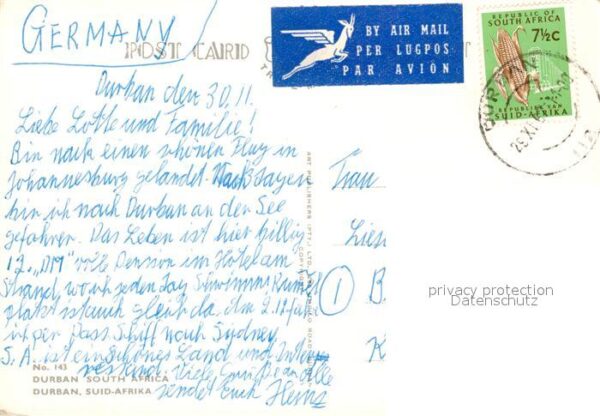 GERMANY
POST CARD
BY AIR MAIL
PER LUGPOS
PAR AVION
REPUBLIC OF
SOUTH AFRICA
7½c
REPUBLIEK VAN
SUID-AFRIKA
DURBAN
Durban den 30.11.
Liebe Lotte und Familie!
Bin nach einen schönen Flug in
Johannesburg gelandet. Nach Tagen
bin ich nach Durban an den See
gefahren. Das Leben ist hier billig
12. "DM" volle Pension im Hotel am
Strand, wo ich jeden Tag Schwimme
platz ist auch gleich da. Am 2.12.
ich per Pass. Schiff nach Sydney.
S. A. ist ein schönes Land und
Viele Grüße an Alle
sendet Euch Heinz
Frau
Lies
1 B.
K
No. 143
DURBAN SOUTH AFRICA
DURBAN, SUID-AFRIKA
ART PUBLISHERS (PTY.) LTD.
privacy protection
Datenschutz